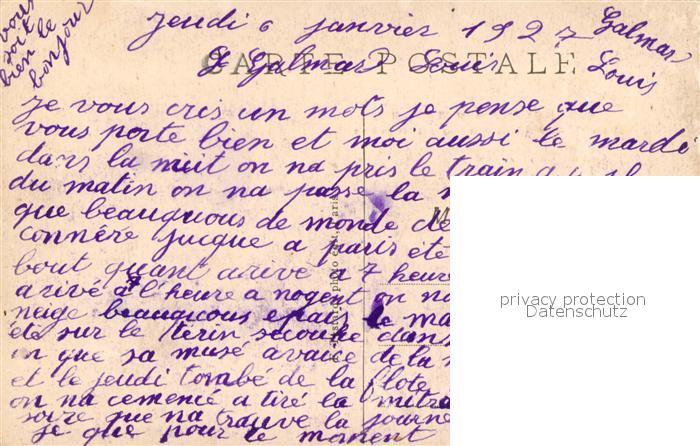 vous
soit
bien le
bonjour
jeudi 6 janvier 1927
Galmar
Louis
CARTE POSTALE
Galmar Louis
je vous cris un mots je pense que
vous porte bien et moi aussi le mardi
dans la nuit on na pris le train a
du matin on na passe la
que beauquous de monde de
connére jucque a paris été
bout quant arivé a 7 heure
arivé a l'heure a nogent on na
neige beauquous epai le ma
été sur le térin secouhe dans
on que sa musé avance de la
et le jeudi tombé de la flote
on na cemencé a tiré la mitra
soire que na trauve la journé
je que pour le moment
privacy protection
Datenschutz